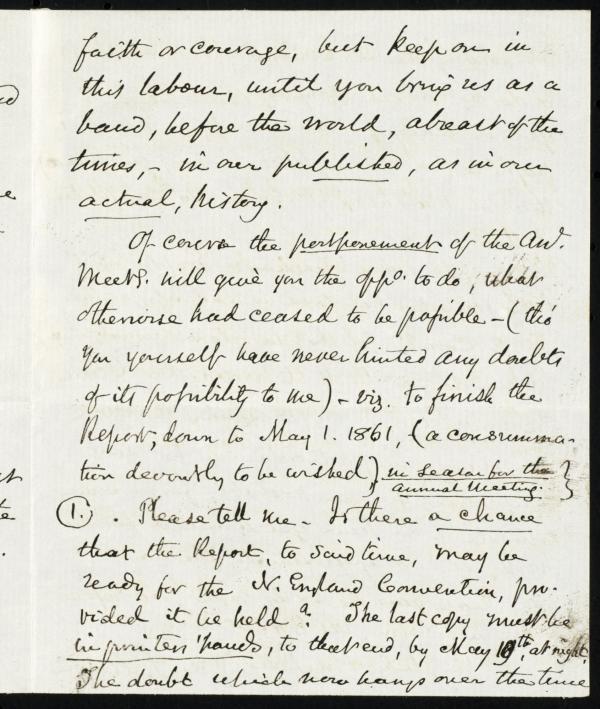 faith or courage, but keep on in
this labour, until you bring us as a
band, before the world, abreast of the
times, - in our published, as in our
actual, history.
Of course the postponement of the An'l.
Meet'g. will give you the opp'y. to do, what
otherwise had ceased to be possible - (tho'
you yourself have never hinted any doubts
of its possibility to me) - viz. to finish the
Report, down to May 1. 1861, (a consumma-
tion devoutly to be wished) in season for the
Annual Meeting. }
(1.) . Please tell me - Is there a chance
that the Report, to said time, may be
ready for the N. England Convention, pro-
vided it be held? The last copy must be
in printers' hands, to that end, by May th, at night.
The doubt which now hangs over the time